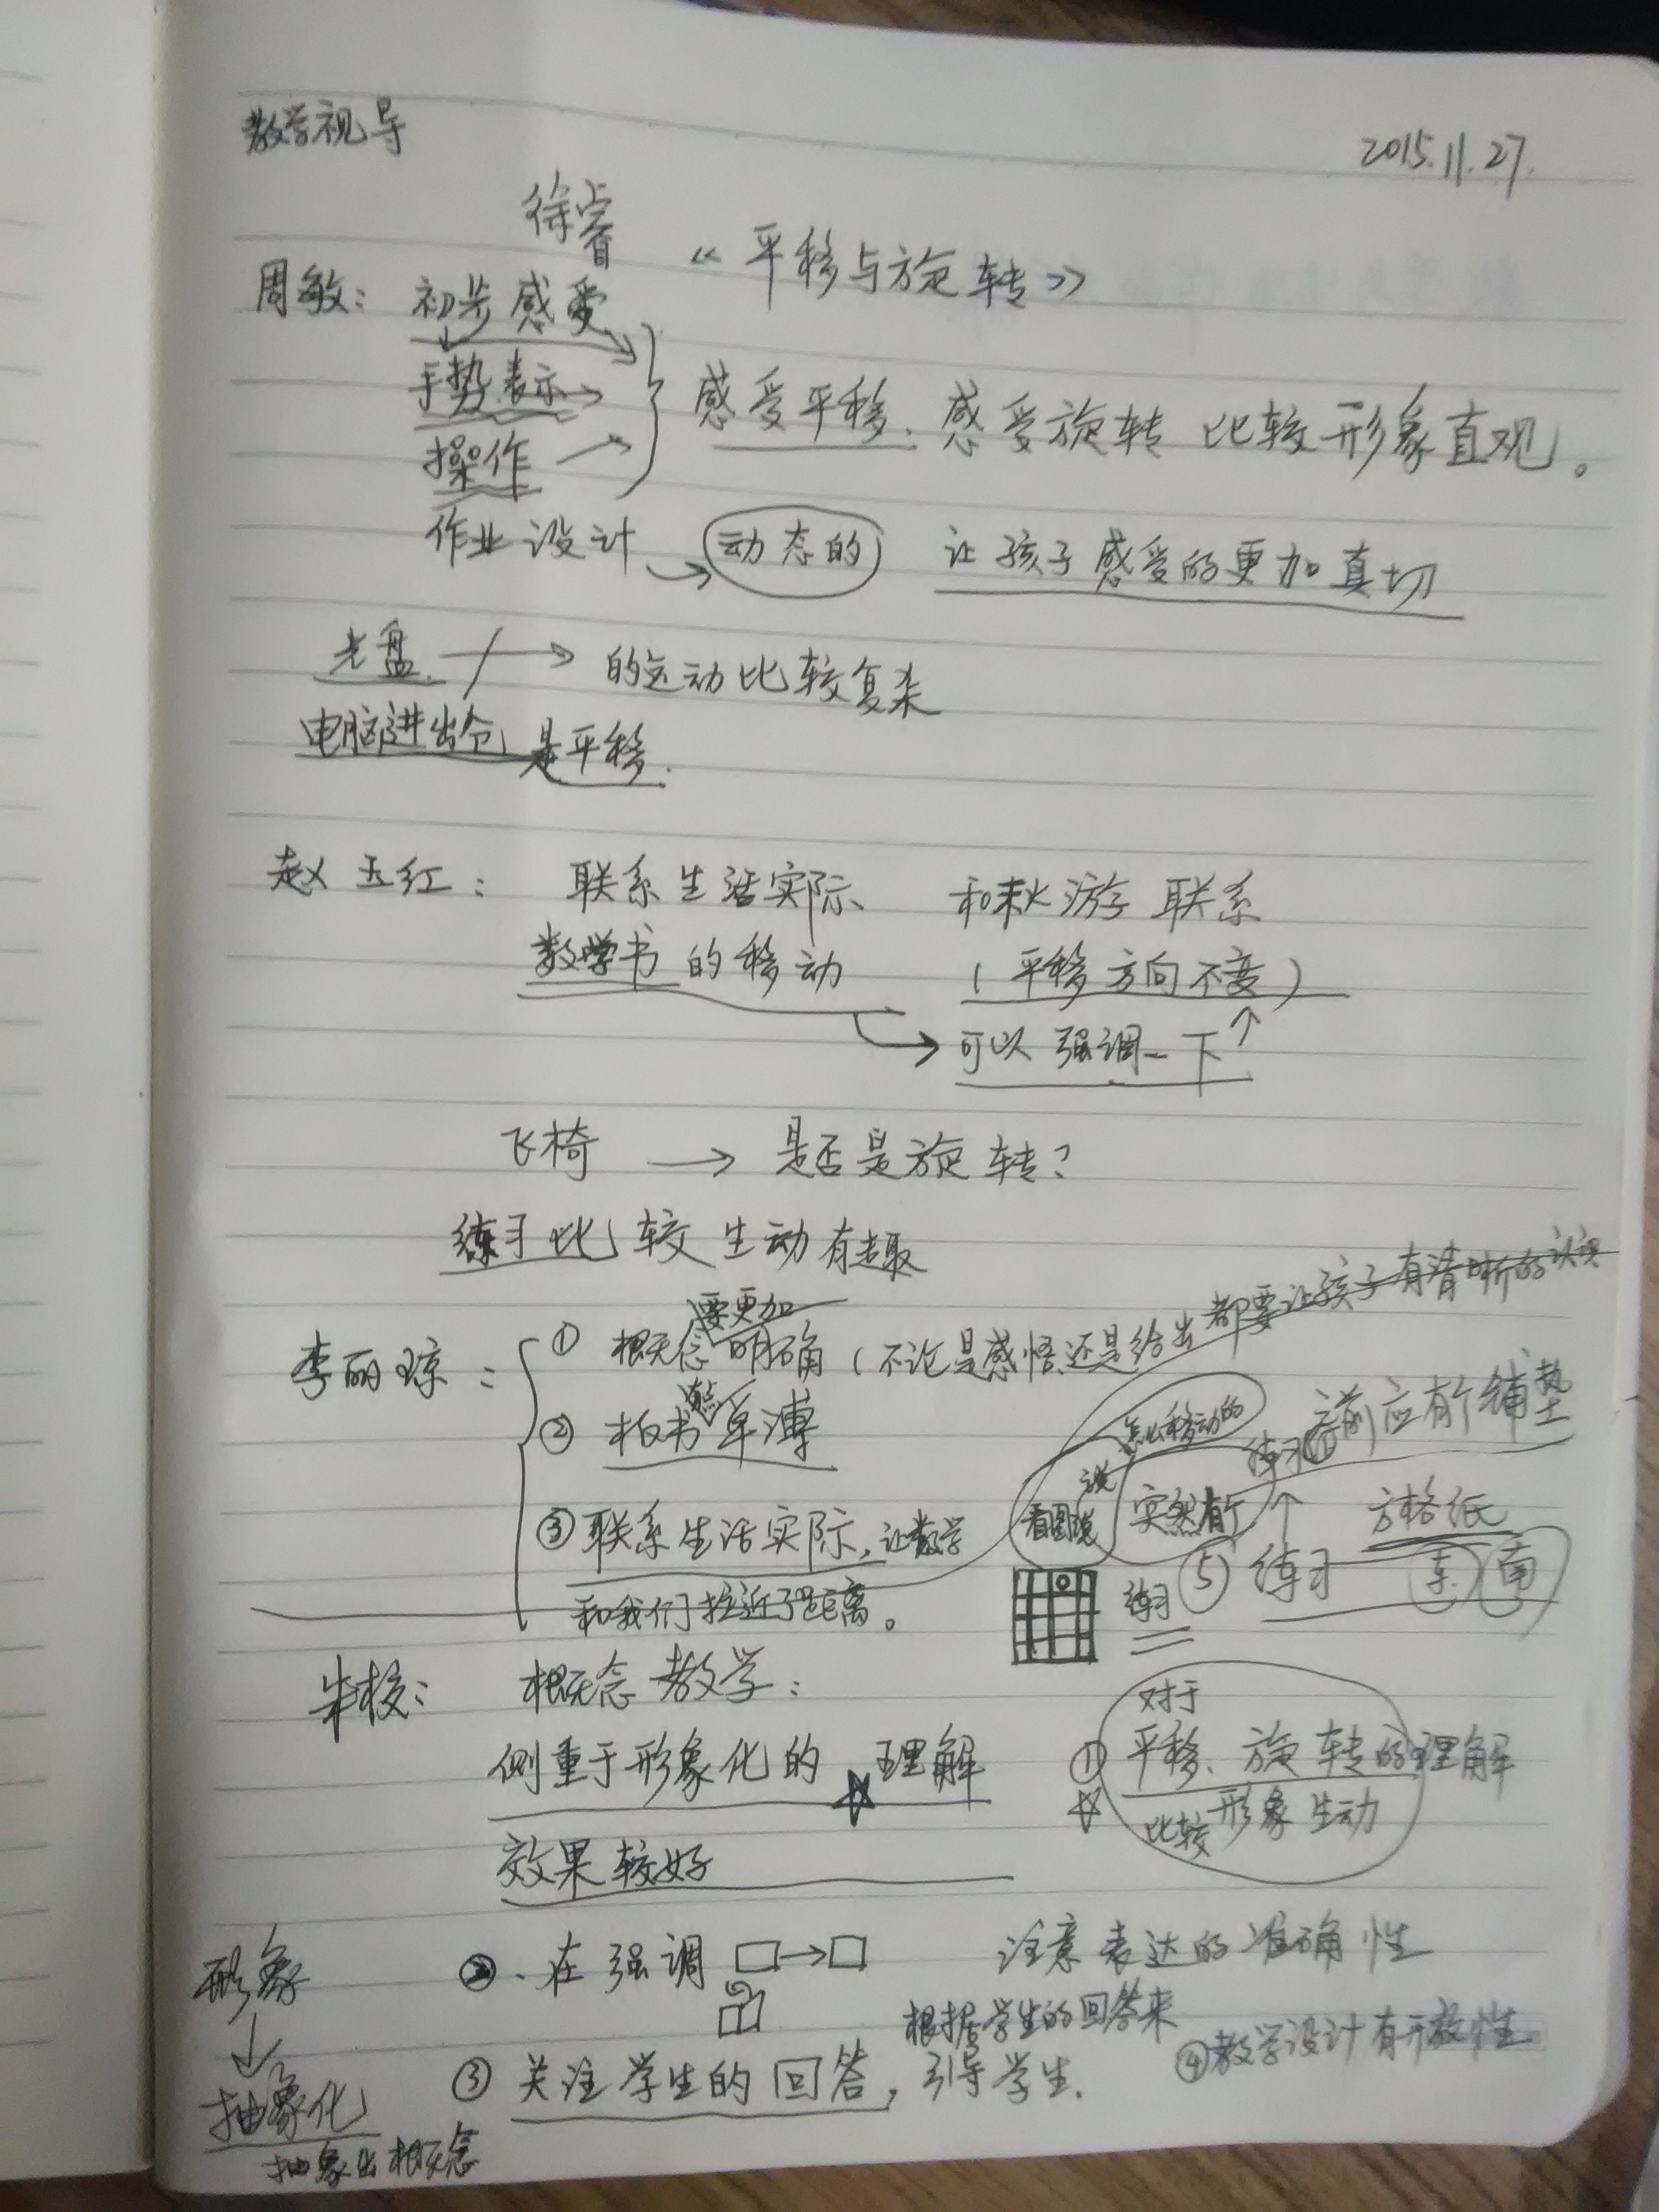 教学视导
2015.11.27.
徐睿 《平移与旋转》
周敏：初步感受
手势表示 感受平移、感受旋转 比较形象直观。
操作
作业设计 动态的 让孩子感受的更加真切
光盘 的运动比较复杂
电脑进出仓 是平移.
赵玉红： 联系生活实际、 和秋游 联系
数学书的移动 (平移方向不变)
可以强调一下
飞椅 → 是否是旋转?
练习比较生动有趣
李丽琼：① 概念要更加明确 (不论是感悟还是给出都要让孩子有清晰的认识
② 板书单薄
前应有个铺垫
怎么移动的
看图说 说 突然有个 方格纸
③ 联系生活实际，让数学
和我们拉近了距离。
练习 ⑤ 练习 东 南
朱校： 概念教学：
侧重于形象化的 ☆ 理解
效果较好
① 对于
平移、旋转的理解
☆ 比较形象生动
形象
↓
抽象化
抽象出概念
②、在强调 □→□ 注意表达的准确性
③ 关注学生的回答，根据学生的回答来
引导学生.
④教学设计有开放性